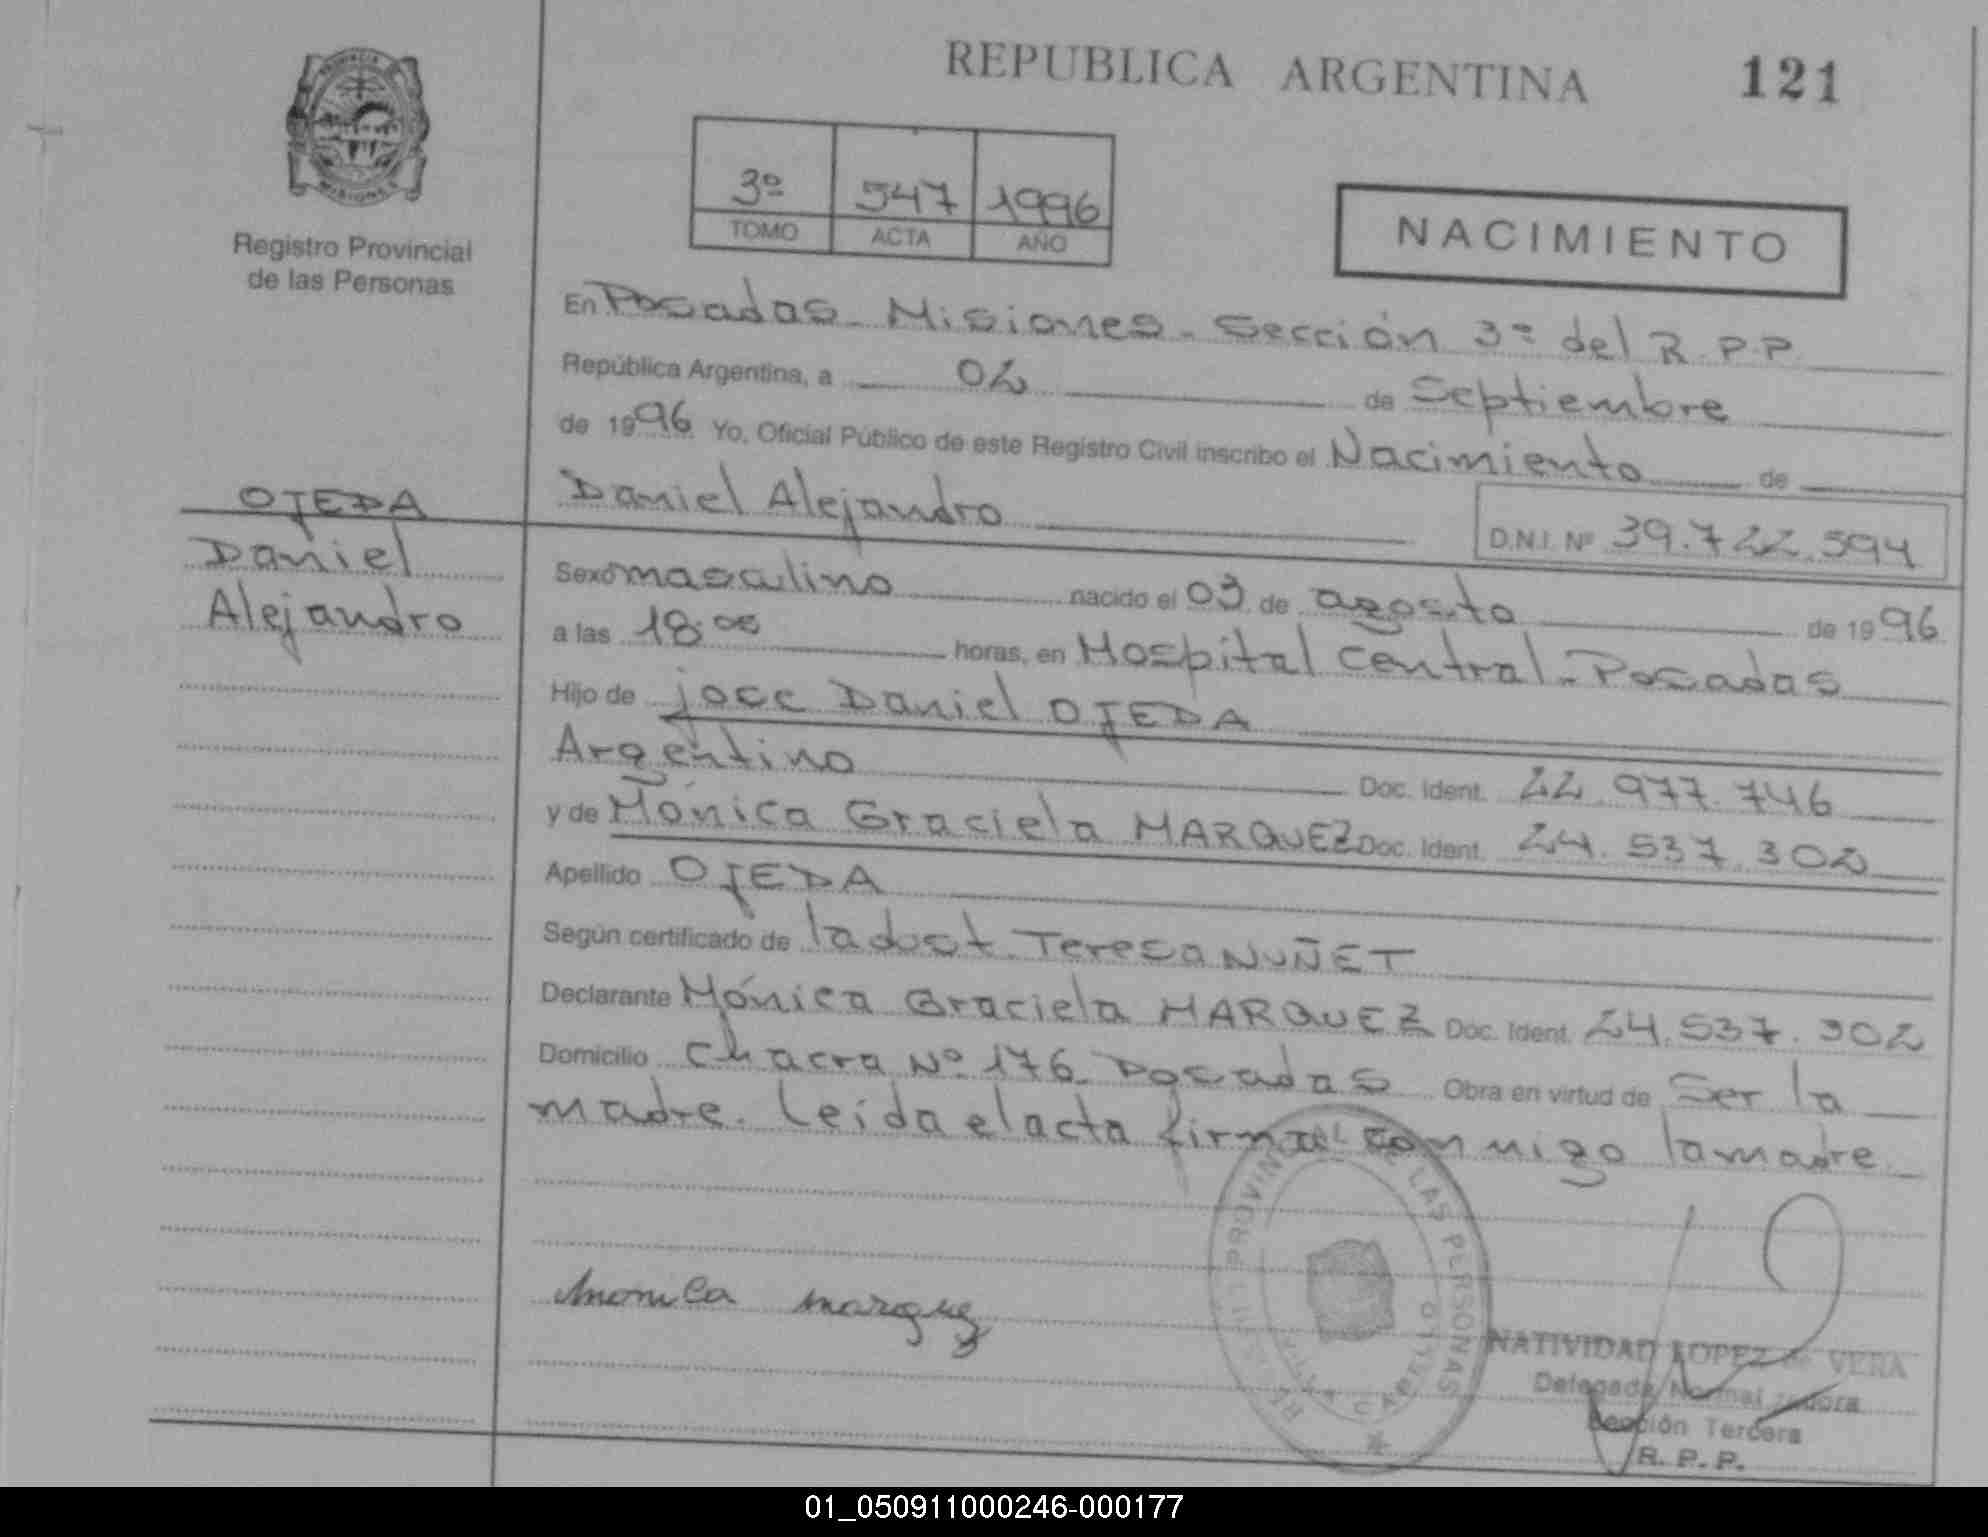 REPUBLICA ARGENTINA 121
PROVINCIA DE MISIONES
Registro Provincial
de las Personas
3º 547 1996
TOMO ACTA AÑO
NACIMIENTO
En Posadas - Misiones - Sección 3ª del R.P.P.
República Argentina, a 02 de Septiembre
de 1996 Yo, Oficial Público de este Registro Civil inscribo el Nacimiento de
Daniel Alejandro D.N.I. Nº 39.722.594
OJEDA
Daniel
Alejandro
Sexo masculino nacido el 03 de agosto de 1996
a las 18:00 horas, en Hospital Central - Posadas
Hijo de jose Daniel OJEDA
Argentino Doc. Ident. 22.977.746
y de Mónica Graciela MARQUEZ Doc. Ident. 24.537.302
Apellido OJEDA
Según certificado de la doct. Teresa NUÑET
Declarante Mónica Graciela MARQUEZ Doc. Ident. 24.537.302
Domicilio Chacra Nº 176 Posadas Obra en virtud de Ser la
madre. Leida el acta firma conmigo la madre.
Monica Marquez
REGISTRO PROVINCIAL DE LAS PERSONAS
VILLA CABELLO
NATIVIDAD LOPEZ de VERA
Delegada Normalizadora
Sección Tercera
R. P. P.
01_050911000246-000177